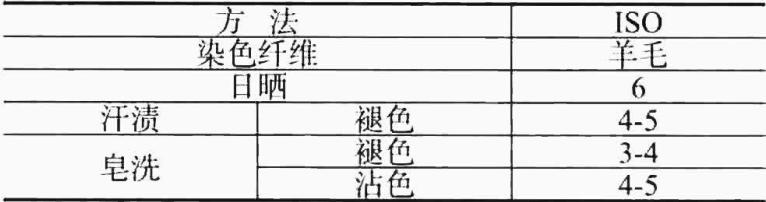 方 法 ISO
染色纤维 羊毛
日晒 6
汗渍 褪色 4-5
皂洗 褪色 3-4
沾色 4-5